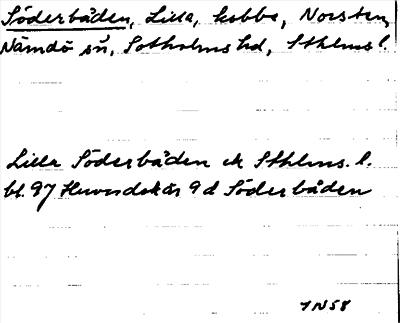 Söderbåden, Lilla, kobbe, Norsten,
Nämdö sn, Sotholms hd, Sthlms l.
Lilla Söderbåden ek Sthlms. l.
bl. 97 Huvudskär 9d Söderbåden
1N58